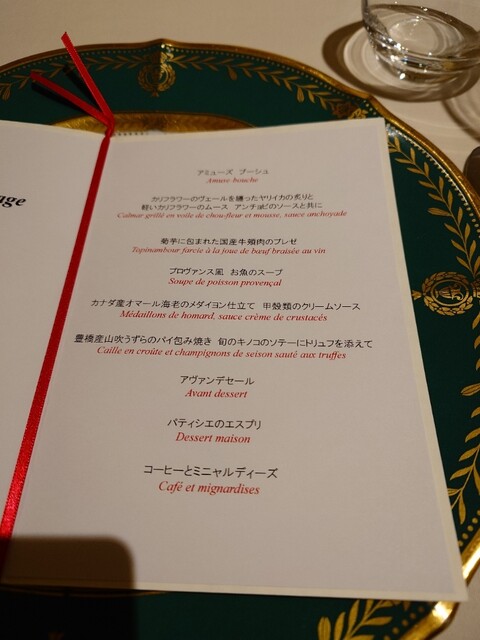 age
アミューズ ブーシュ
Amuse-bouche
カリフラワーのヴェールを纏ったヤリイカの炙りと
軽いカリフラワーのムース アンチョビのソースと共に
Calmar grillé en voile de choufleur et mousse, sauce anchoyade
菊芋に包まれた国産牛頬肉のブレゼ
Topinambour farcie à la joue de bœuf braisée au vin
プロヴァンス風 お魚のスープ
Soupe de poisson provençal
カナダ産オマール海老のメダイヨン仕立て 甲殻類のクリームソース
Médaillons de homard, sauce crème de crustacés
豊橋産山吹うずらのパイ包み焼き 旬のキノコのソテーにトリュフを添えて
Caille en croûte et champignons de seison sauté aux truffes
アヴァンデセール
Avant dessert
パティシエのエスプリ
Dessert maison
コーヒーとミニャルディーズ
Café et mignardises